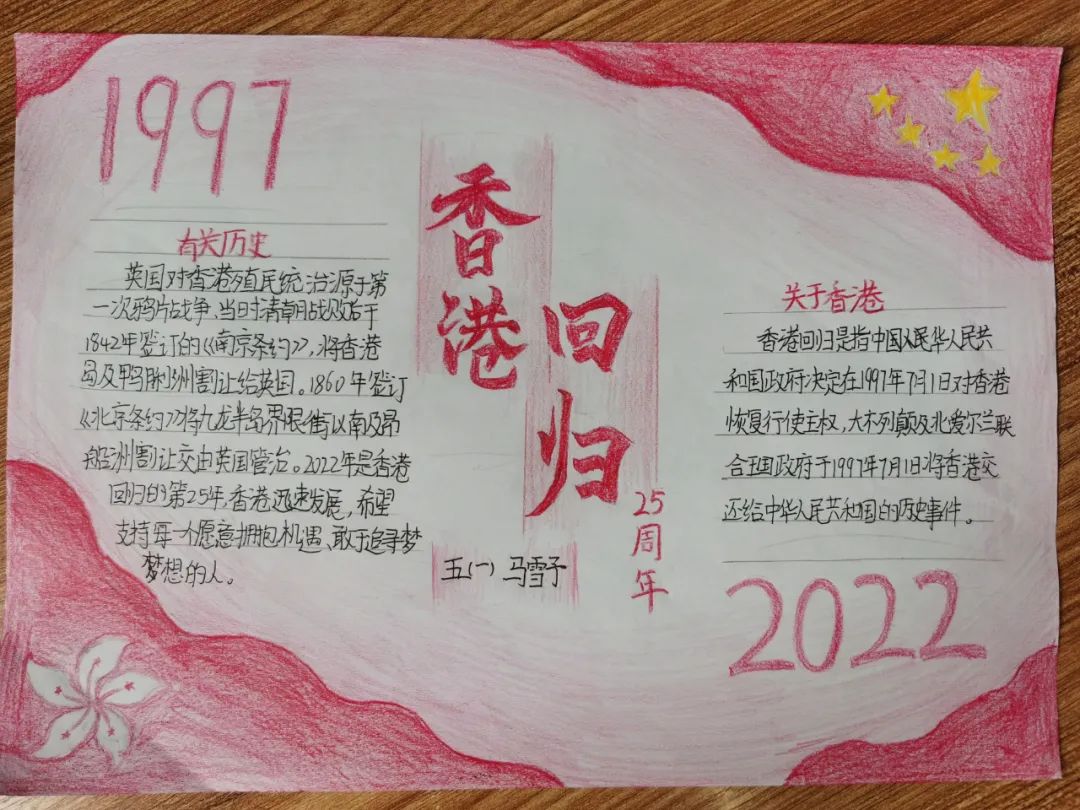 1997
有关历史
英国对香港殖民统治源于第
一次鸦片战争.当时清朝战败后于
1842年签订的《南京条约》,将香港
岛及鸭脷洲割让给英国。1860年签订
《北京条约》将九龙半岛界限街以南及昂
船洲割让交由英国管治。2022年是香港
回归的第25年,香港迅速发展,希望
支持每一个愿意拥抱机遇、敢于追寻梦
梦想的人。
香港
回归
25周年
五(一) 马雪子
关于香港
香港回归是指中国人民华人民共
和国政府决定在1997年7月1日对香港
恢复行使主权,大不列颠及北爱尔兰联
合王国政府于1997年7月1日将香港交
还给中华人民共和国的历史事件。
2022